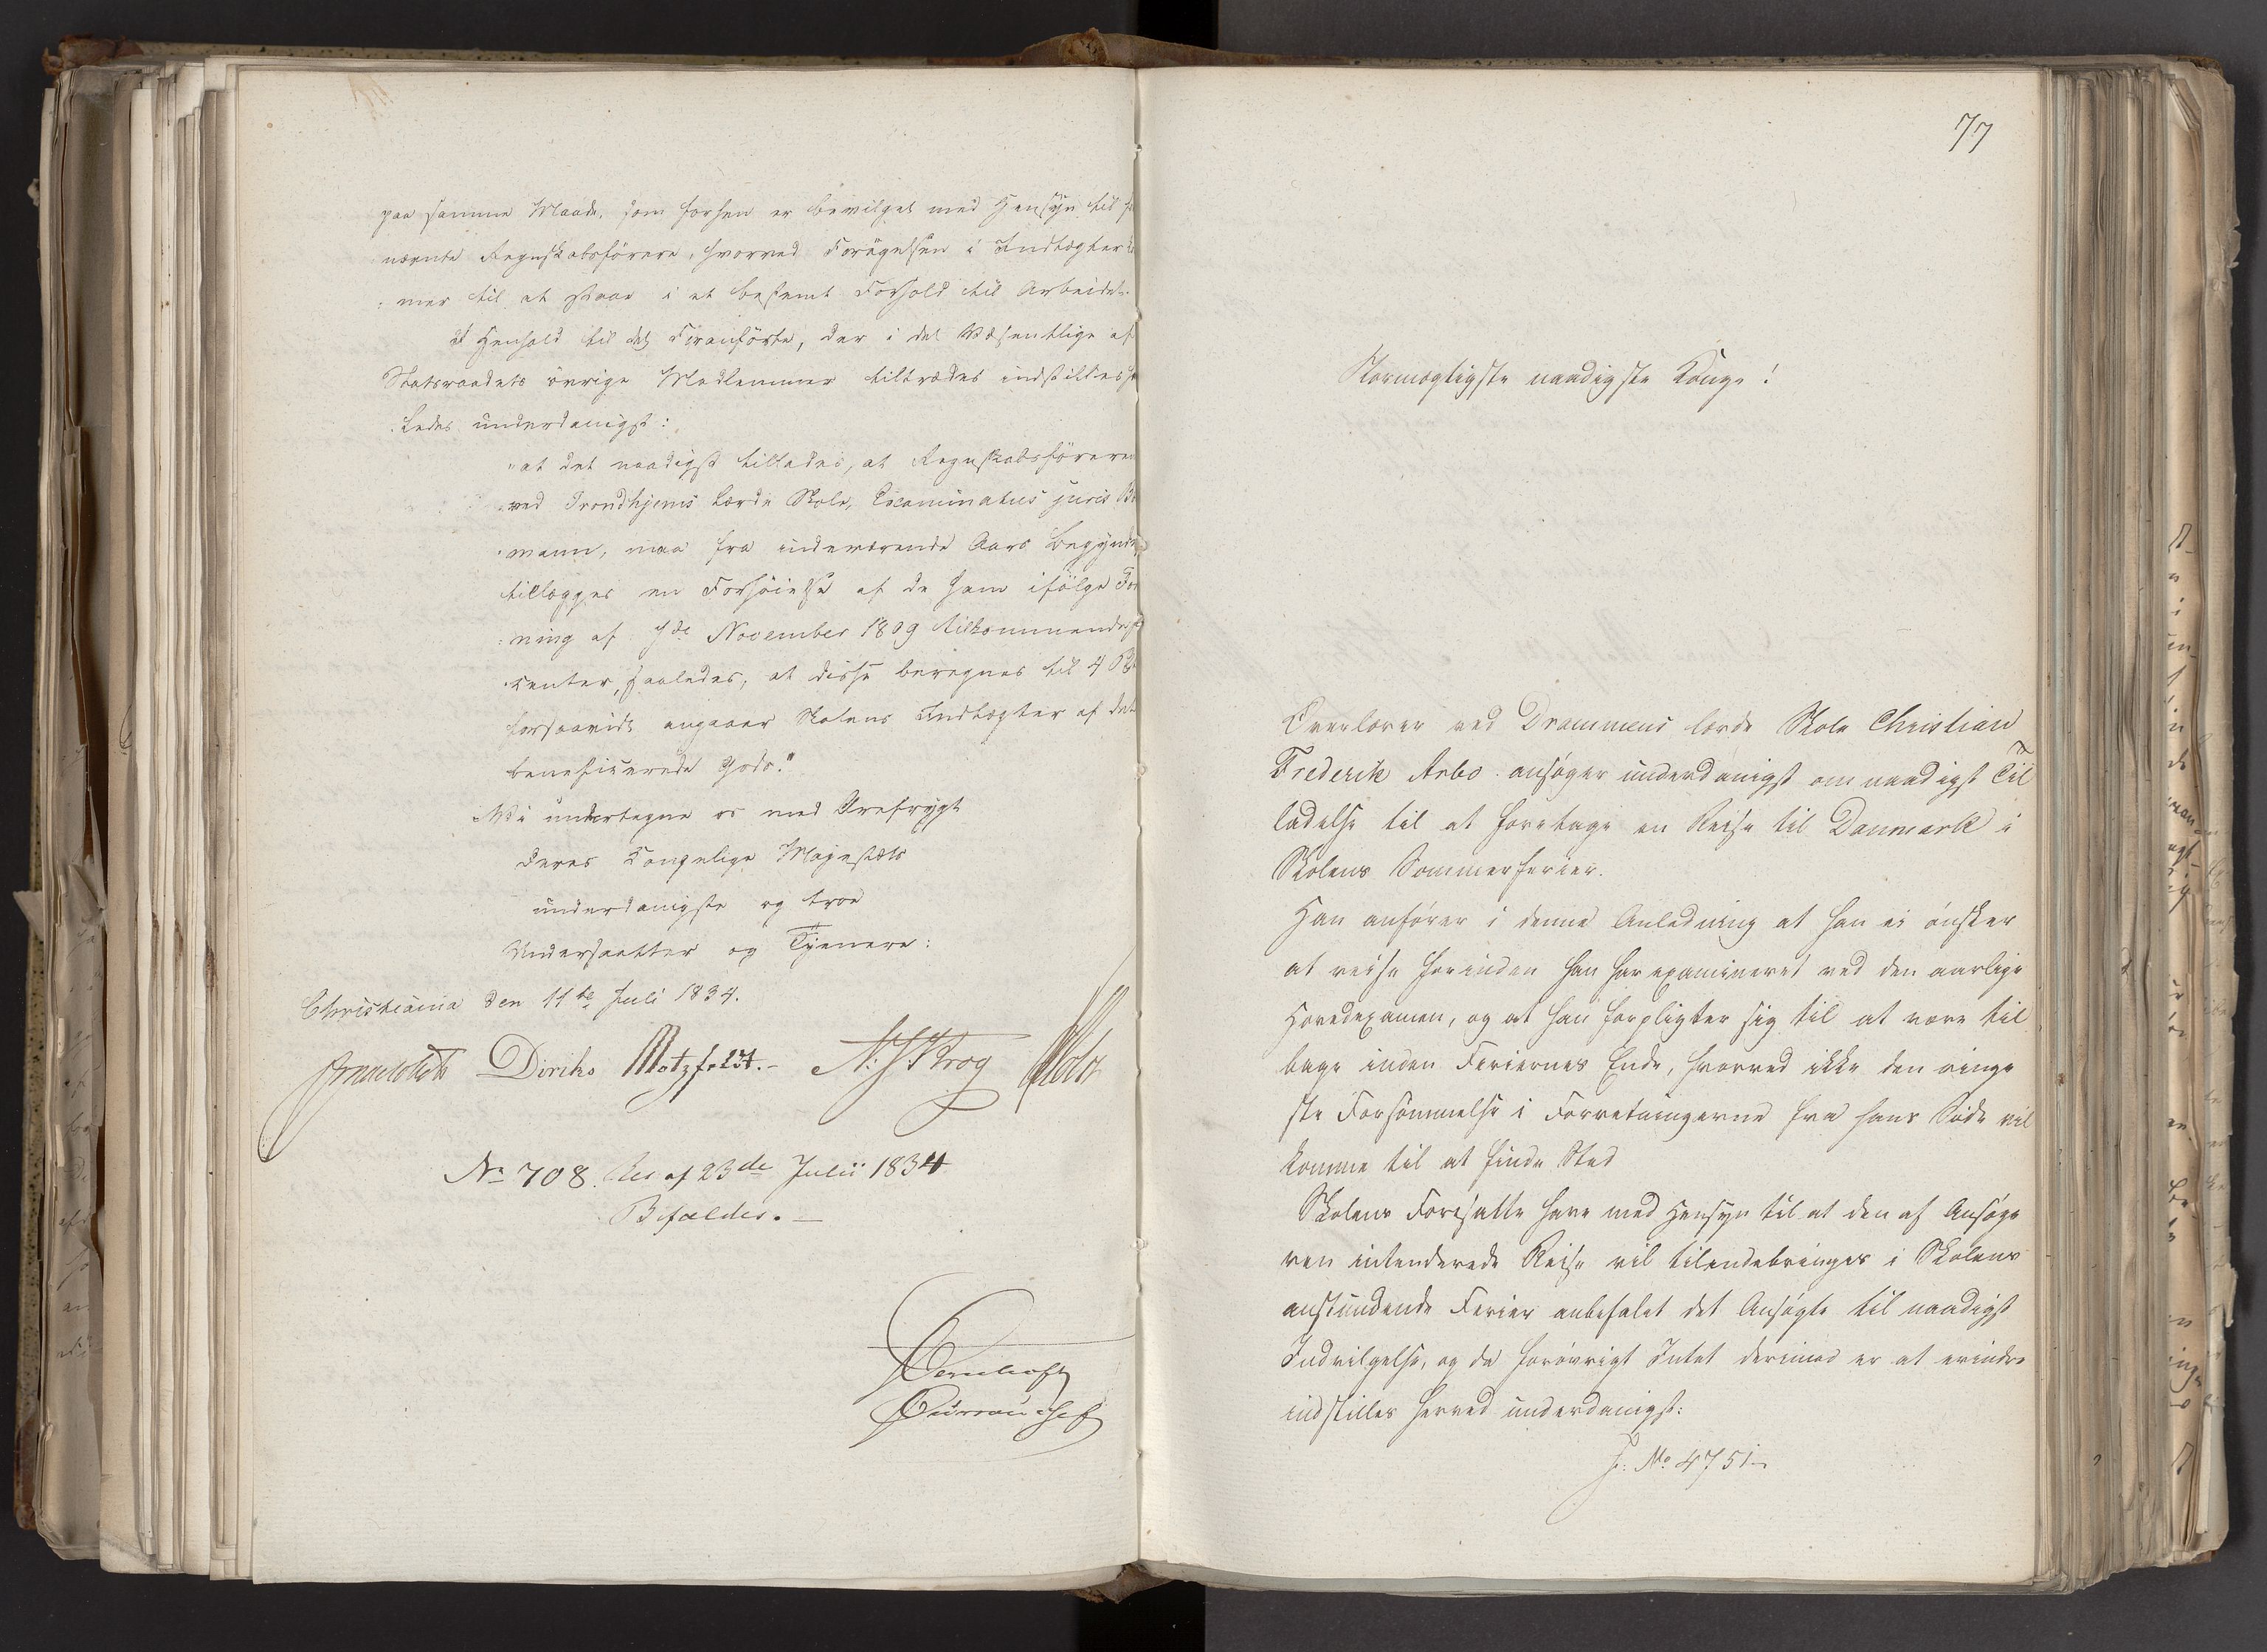 paa samme Maade, som forhen er bevilget med Hensyn til
nævnte Regnskabsförere, hvorved Forögelsen i Indtægter
mer til at staae i et bestemt Forhold til Arbeidet.
I Henhold til det Foranförte, der i det Væsentlige af
Statsraadets övrige Medlemmer tiltrædes indstilles
ledes underdanigst:
"at det naadigst tillades, at Regnskabsföreren
ved Trondhjems lærde Skole, Examinatus juris
mann, maa fra indeværende Aars Begynd
tillægges en Forhöielse af de ham ifölge
ning af 7de November 1809 tilkommende
center, saaledes, at disse beregnes til 4
forsaavidt angaaer Skolens Indtægter af det
beneficerede Gods."
Vi undertegne os med Ærefrygt
Deres Kongelige Majestæts
underdanigste og troe
Undersaatter og Tjenere:
Christiania den 11te Juli 1834.
Diriks Motzfeldt.- N. J. Krog
No 708. Res af 23de Julii 1834
Bifaldes.-
Bureauchef
77
Stormægtigste naadigste Konge!
Overlærer ved Drammens lærde Skole Christian
Frederik Arbo ansøger underdanigst om naadigst Til
ladelse til at foretage en Reise til Danmark i
Skolens Sommerferier.
Han anfører i denne Anledning at han ei ønsker
at reise forinden han har examineret ved den aarlige
Hovedexamen, og at han forpligter sig til at være til
bage inden Feriernes Ende, hvorved ikke den ringe
ste Forsømmelse i Forretningerne fra hans Side vil
komme til at finde Sted
Skolens Foresatte have med Hensyn til at den af Ansøge
ren intenderede Reise vil tilendebringes i Skolens
anstundende Ferier anbefalet det Ansøgte til naadigst
Indvilgelse, og da forøvrigt Intet derimod er at erindre
indstilles herved underdanigst:
J: No 4751